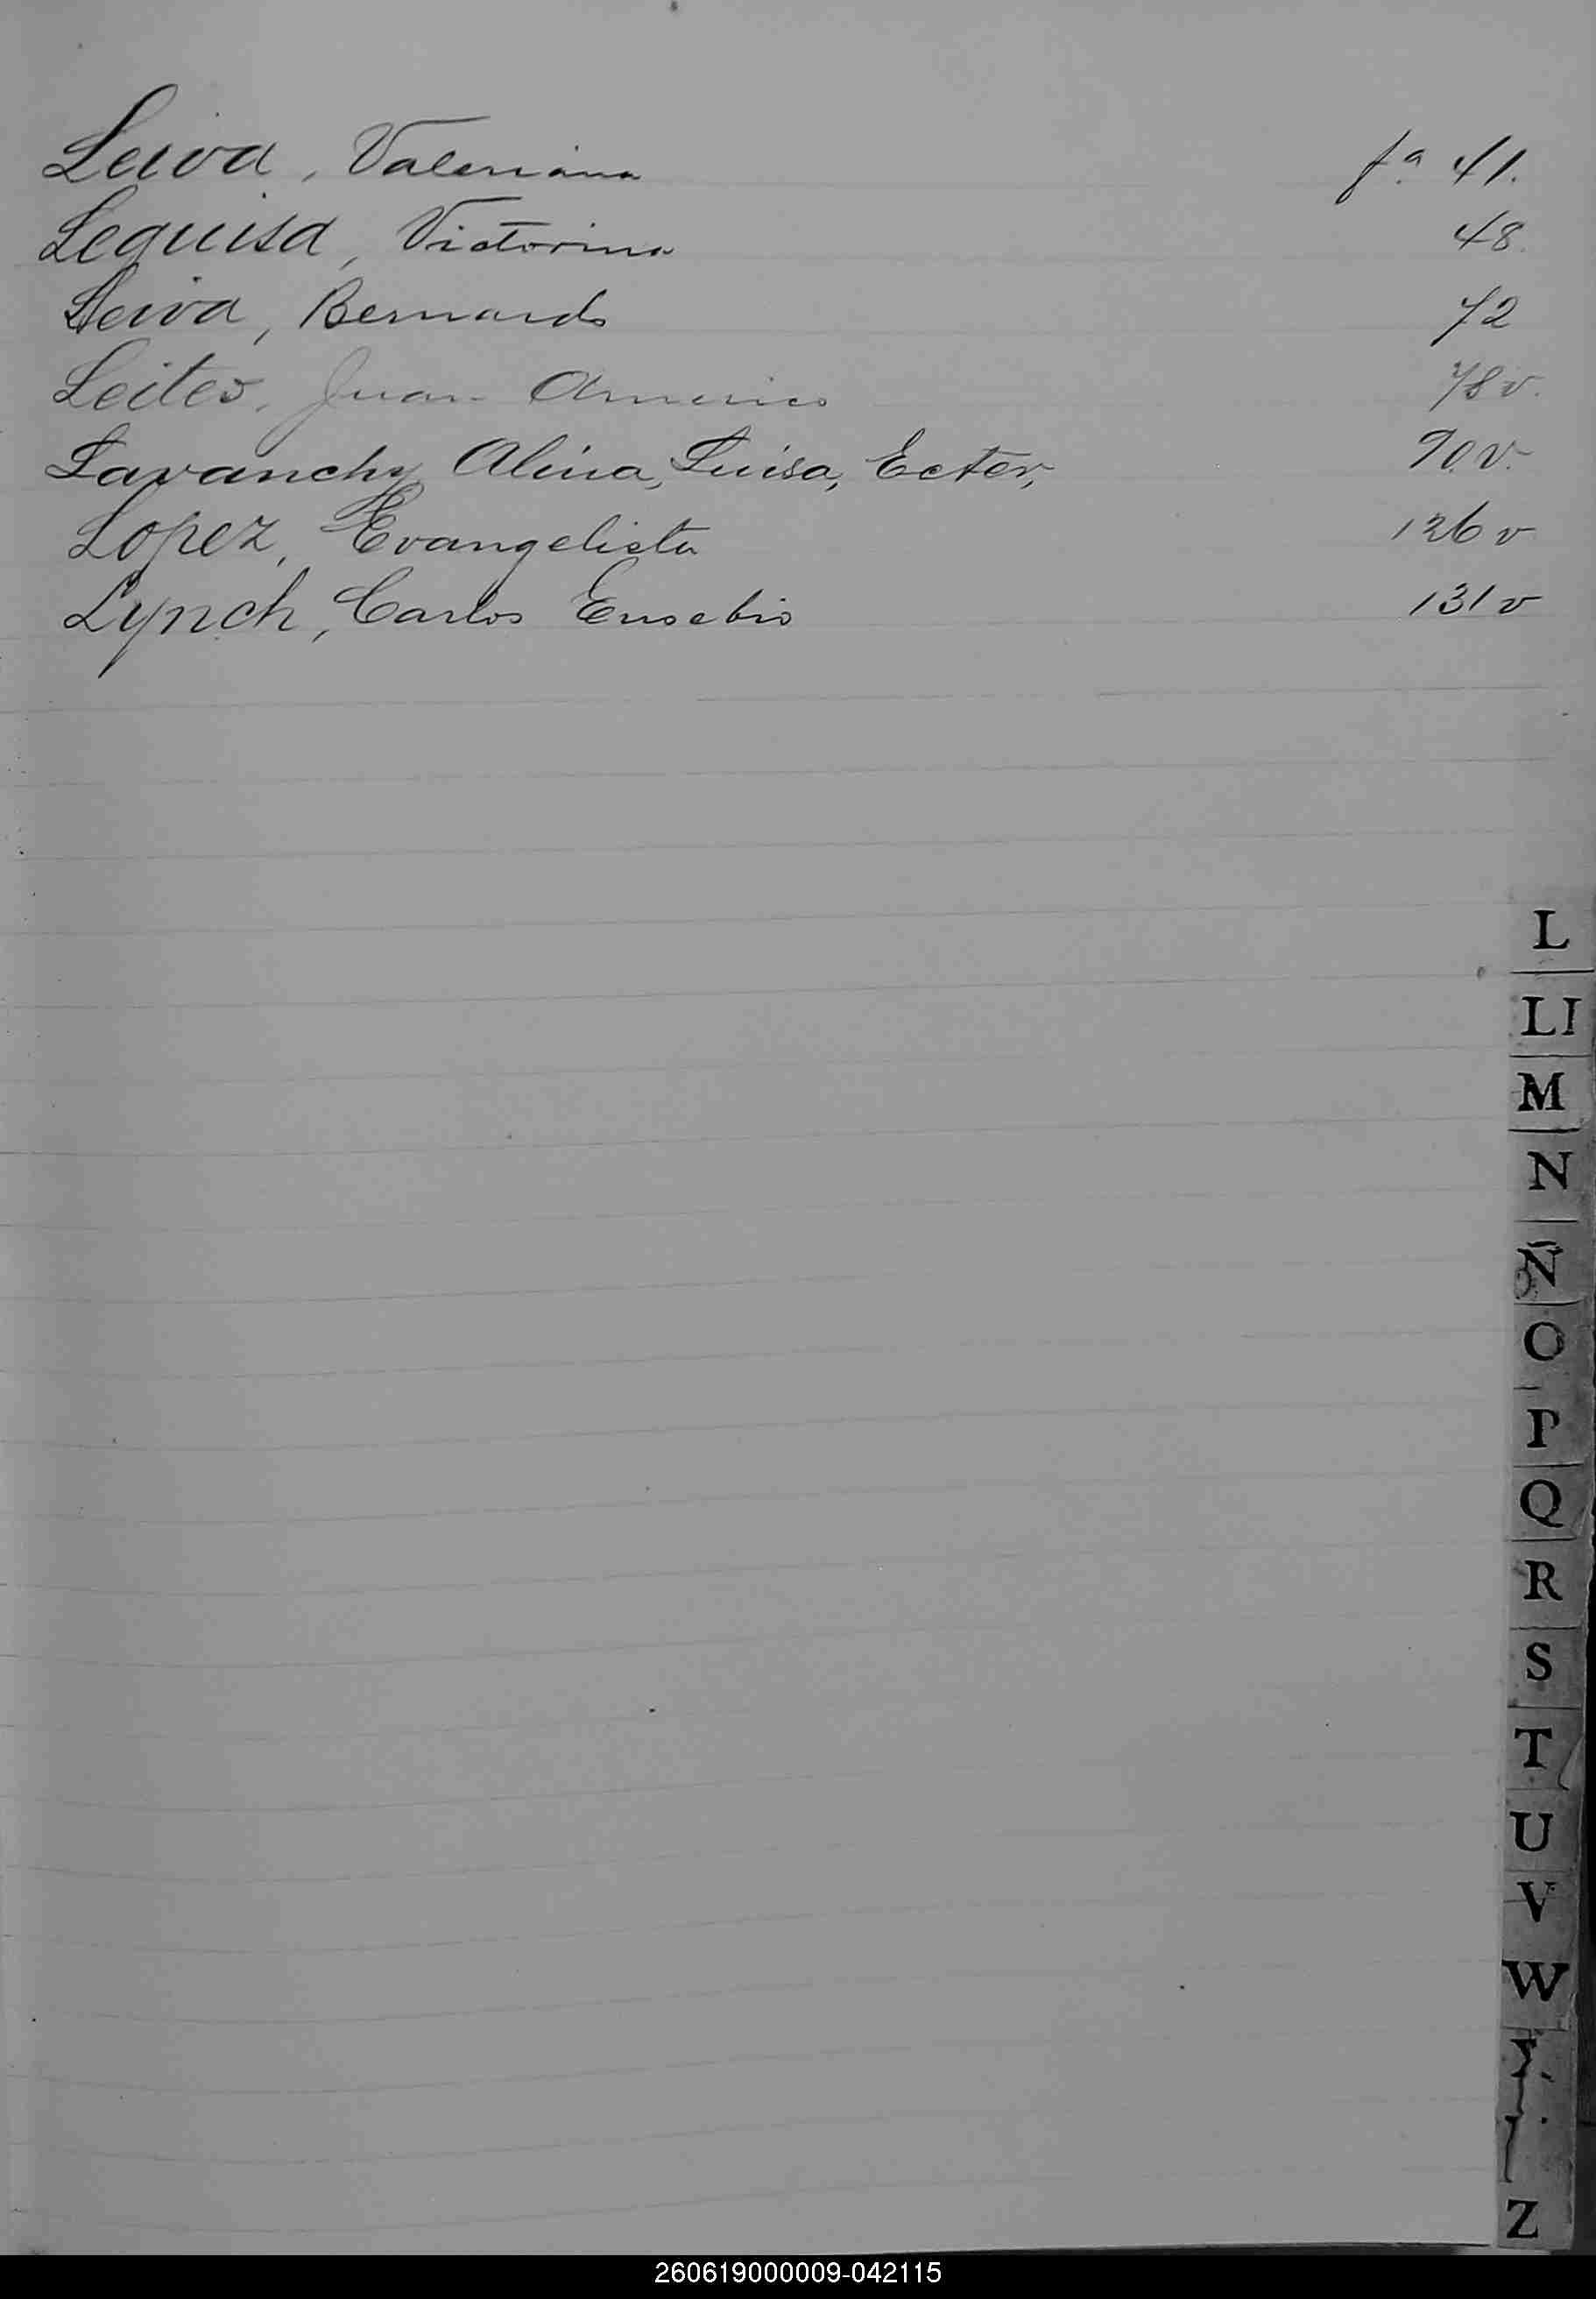 Leiva, Valeriana fª 41.
Leguisa, Victorina 48
Leiva, Bernardo 72
Leites, Juan Americo 78 v.
Lavanchy Alina, Luisa, Ector, 90 v.
Lopez, Evangelista 126 v
Lynch, Carlos Eusebio 131 v
L
Ll
M
N
Ñ
O
P
Q
R
S
T
U
V
W
Z
260619000009-042115